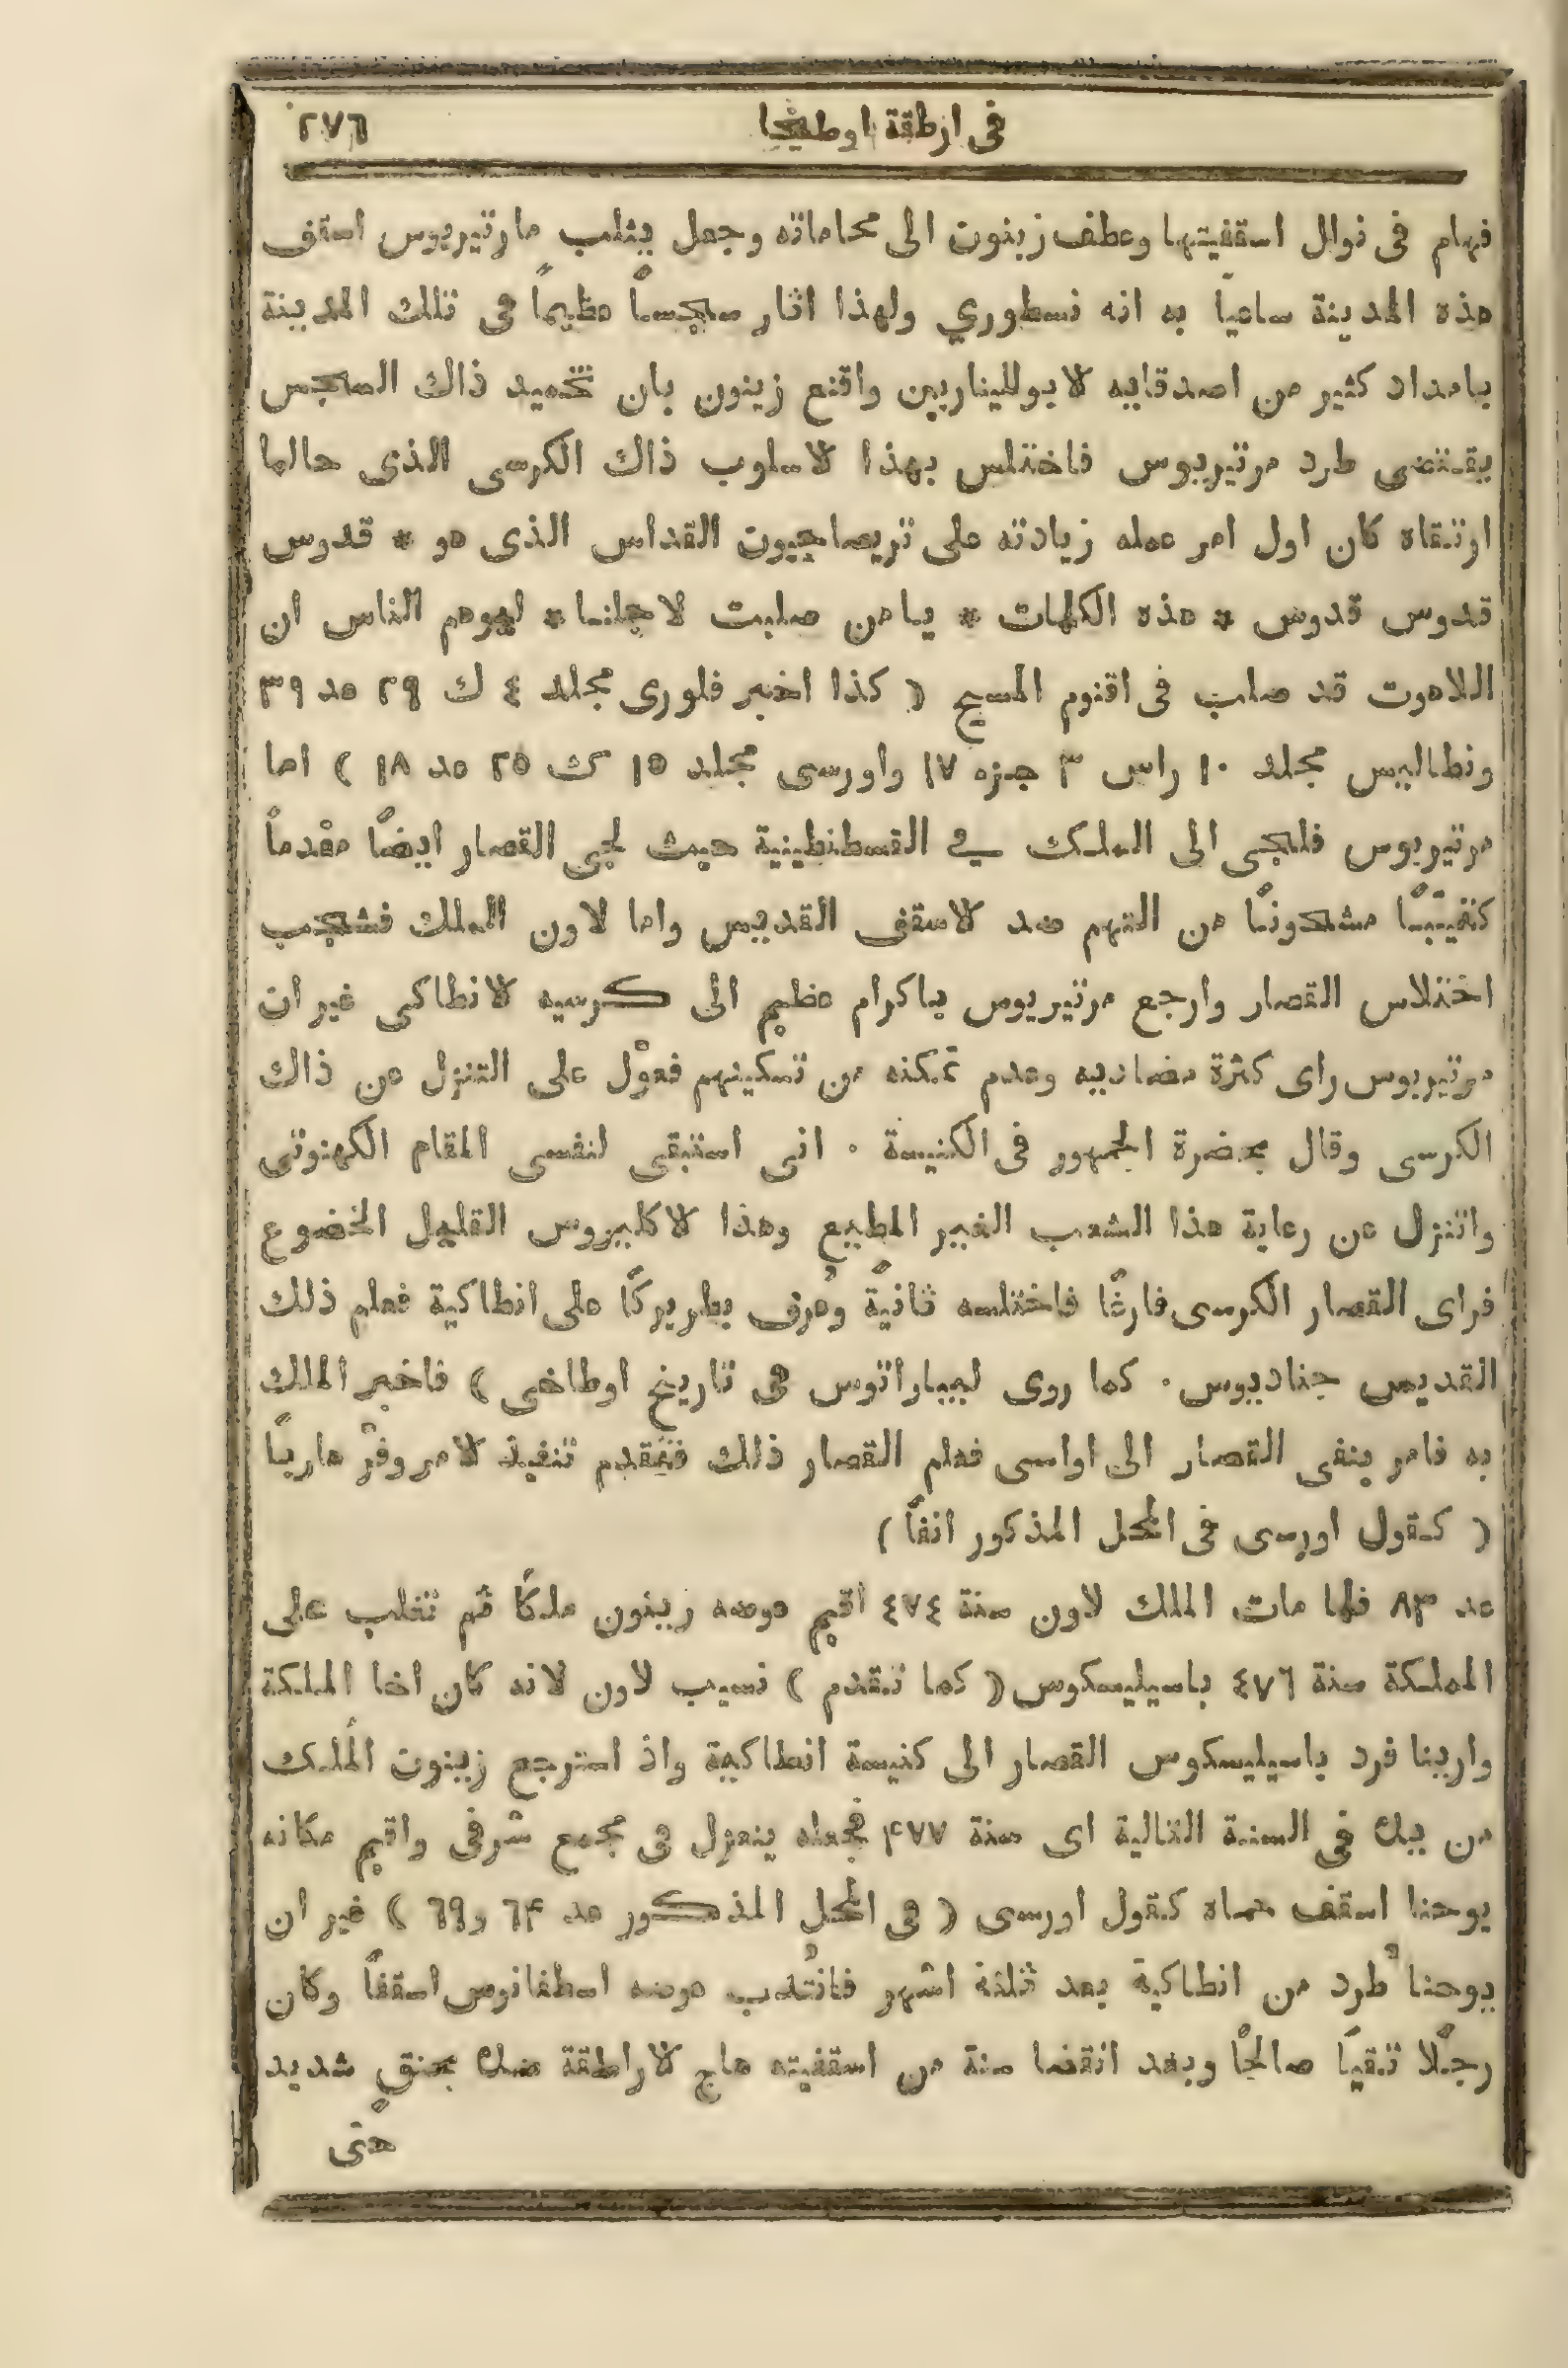 في ارطقة اوطيخا ٢٧٦
فهام في نوال اسقفيتها وعطف زينون الى محاماته وجعل يثلب مارتيريوس اسقف
هذه المدينة ساعيًا به انه نسطوري ولهذا اثار سجسًا عظيمًا في تلك المدينة
بامداد كثير من اصدقايه لابوللیناریین واقنع زينون بان تخميد ذاك السجس
يقتضى طرد مرتيريوس فاختلس بهذا لاسلوب ذاك الكرسى الذى حالما
ارتقاه كان اول امر عمله زيادته على تريصاجيون القداس الذى هو * قدوس
قدوس قدوس * هذه الكلمات * يا من صلبت لاجلنا * ليوهم الناس ان
اللاهوت قد صلب فى اقنوم المسيح ( كذا اخبر فلورى مجلد ٤ ك ٢٩ عد ٣٩
ونطاليس مجلد ١٠ راس ٣ جزه ١٧ واورسى مجلد ١٥ ك ٢٥ عد ١٨ ) اما
مرتيريوس فلجى الى الملك في القسطنطينية حيث لجى القصار ايضًا مقدمًا
كتيبًا مشحونًا من التهم ضد لاسقف القديس واما لاون الملك فشجب
اختلاس القصار وارجع مرتيريوس باكرام عظيم الى كرسيه لانطاكى غير ان
مرتيريوس راى كثرة مضادييه وعدم تمكنه من تسكينهم فعوّل على التنزل عن ذاك
الكرسى وقال بحضرة الجمهور فى الكنيسة ٠ انى استبقى لنفسى المقام الكهنوتى
واتنزل عن رعاية هذا الشعب الغير المطيع وهذا لاكليروس القليل الخضوع
فراى القصار الكرسى فارغًا فاختلسه ثانيةً وعُرف بطريركًا على انطاكية فعلم ذلك
القديس جناديوس ٠ كما روى ليباراتوس فى تاريخ اوطاخى ) فاخبر الملك
به فامر بنفى القصار الى اواسى فعلم القصار ذلك فتقدم تنفيذ لامر وفرّ هاربًا
( كقول اورسى فى المحل المذكور انفًا )
عد ٨٣ فلما مات الملك لاون سنة ٤٧٤ اقيم عوضه زينون ملكًا ثم تغلب على
المملكة سنة ٤٧٦ باسيليسكوس ( كما تقدم ) نسيب لاون لانه كان اخا الملكة
وارينا فرد باسيليسكوس القصار الى كنيسة انطاكية واذ استرجع زينون المُلك
من يده فى السنة التالية اى سنة ۴٧٧ فجعله ينعزل فى مجمع شرقى واقيم مكانه
يوحنا اسقف حماه كقول اورسى ( فى المحل المذكور عد ٦۴ و٦٩ ) غير ان
يوحنا طُرد من انطاكية بعد ثلثة اشهر فانتُدب عوضه اسطفانوس اسقفًا وكان
رجلًا تقيًا صالحًا وبعد انقضا سنة من اسقفيته هاج لاراطقة ضده بحنقٍ شديد
حتى